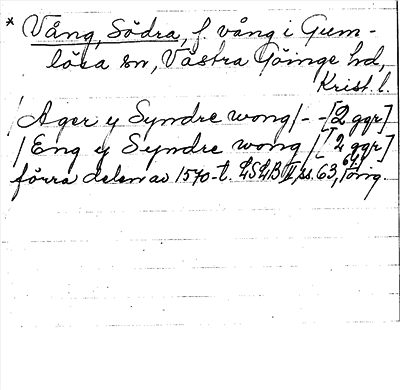 * Vång, Södra, f. vång i Gum-
lösa sn, Västra Göinge hd,
Krist. l.
/Ager y Syndre wong/ - - [2 ggr]
/Eng y Syndre wong/ [2 ggr]
förra delen av 1570-t. LSLB II, ss. 63, 64,